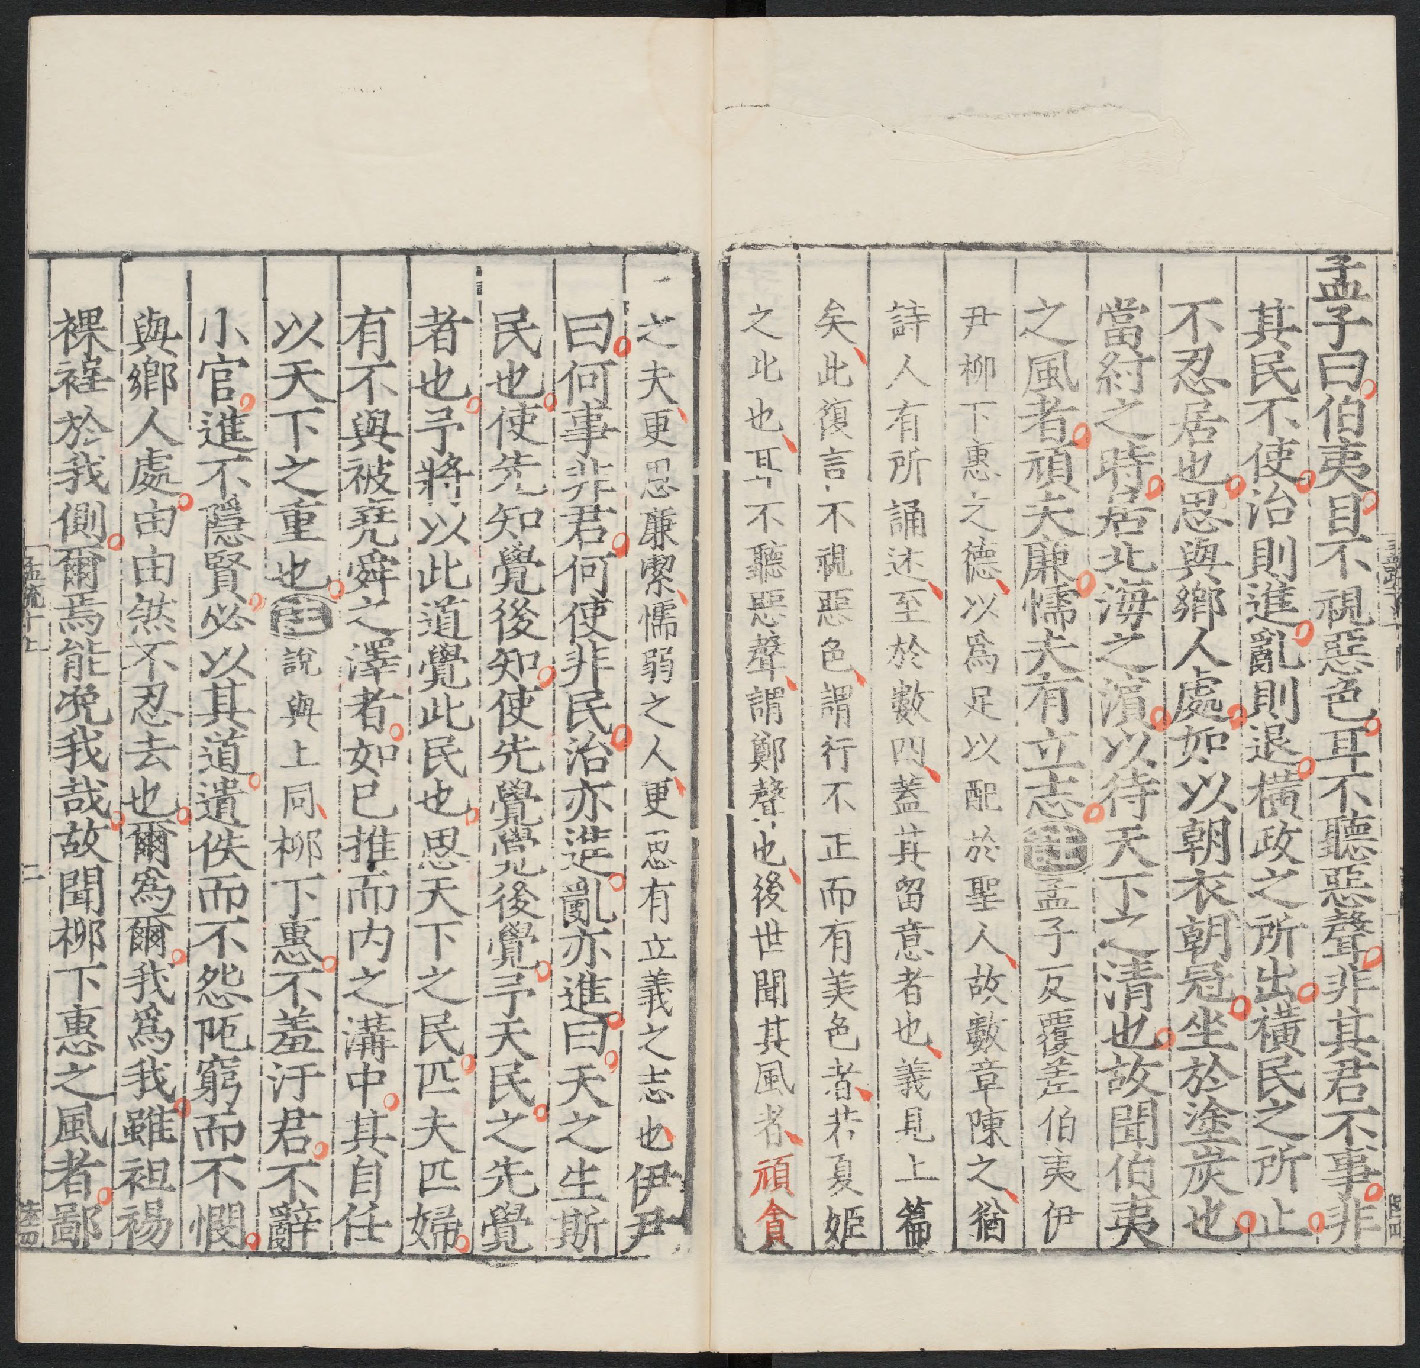 孟子曰伯夷目不視惡色耳不聽惡聲非其君不事非
其民不使治則進亂則退橫政之所出橫民之所止
不忍居也思與鄉人處如以朝衣朝冠坐於塗炭也
當紂之時居北海之濱以待天下之清也故聞伯夷
之風者頑夫廉懦夫有立志註孟子反覆差伯夷伊
尹柳下惠之德以為足以配於聖人故數章陳之猶
詩人有所誦述至於數四蓋其留意者也義見上篇
矣此復言不視惡色謂行不正而有美色者若夏姬
之比也耳不聽惡聲謂鄭聲也後世聞其風者頑貪
之夫更思廉潔懦弱之人更思有立義之志也伊尹
曰何事非君何使非民治亦進亂亦進曰天之生斯
民也使先知覺後知使先覺覺後覺予天民之先覺
者也予將以此道覺此民也思天下之民匹夫匹婦
有不與被堯舜之澤者如己推而內之溝中其自任
以天下之重也註說與上同柳下惠不羞汙君不辭
小官進不隱賢必以其道遺佚而不怨阨窮而不憫
與鄉人處由由然不忍去也爾為爾我為我雖袒裼
裸裎於我側爾焉能浼我哉故聞柳下惠之風者鄙
孟疏十上
二